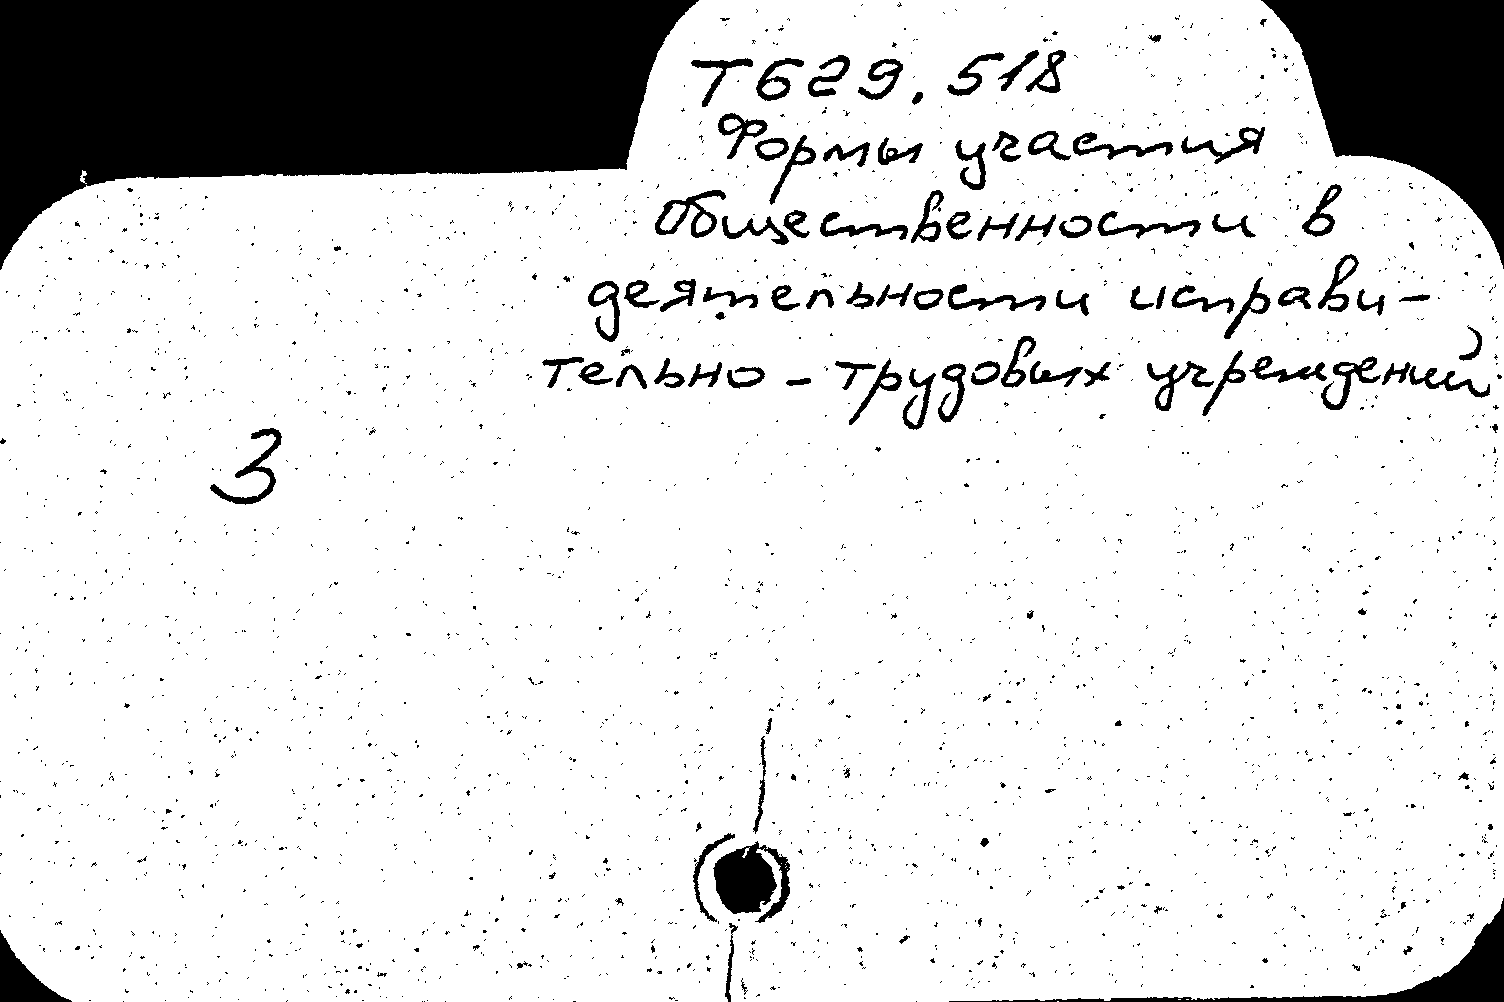 Т629.518
Формы участия
общественности в
деятельности исправи-
тельно-трудовых учреждений
3